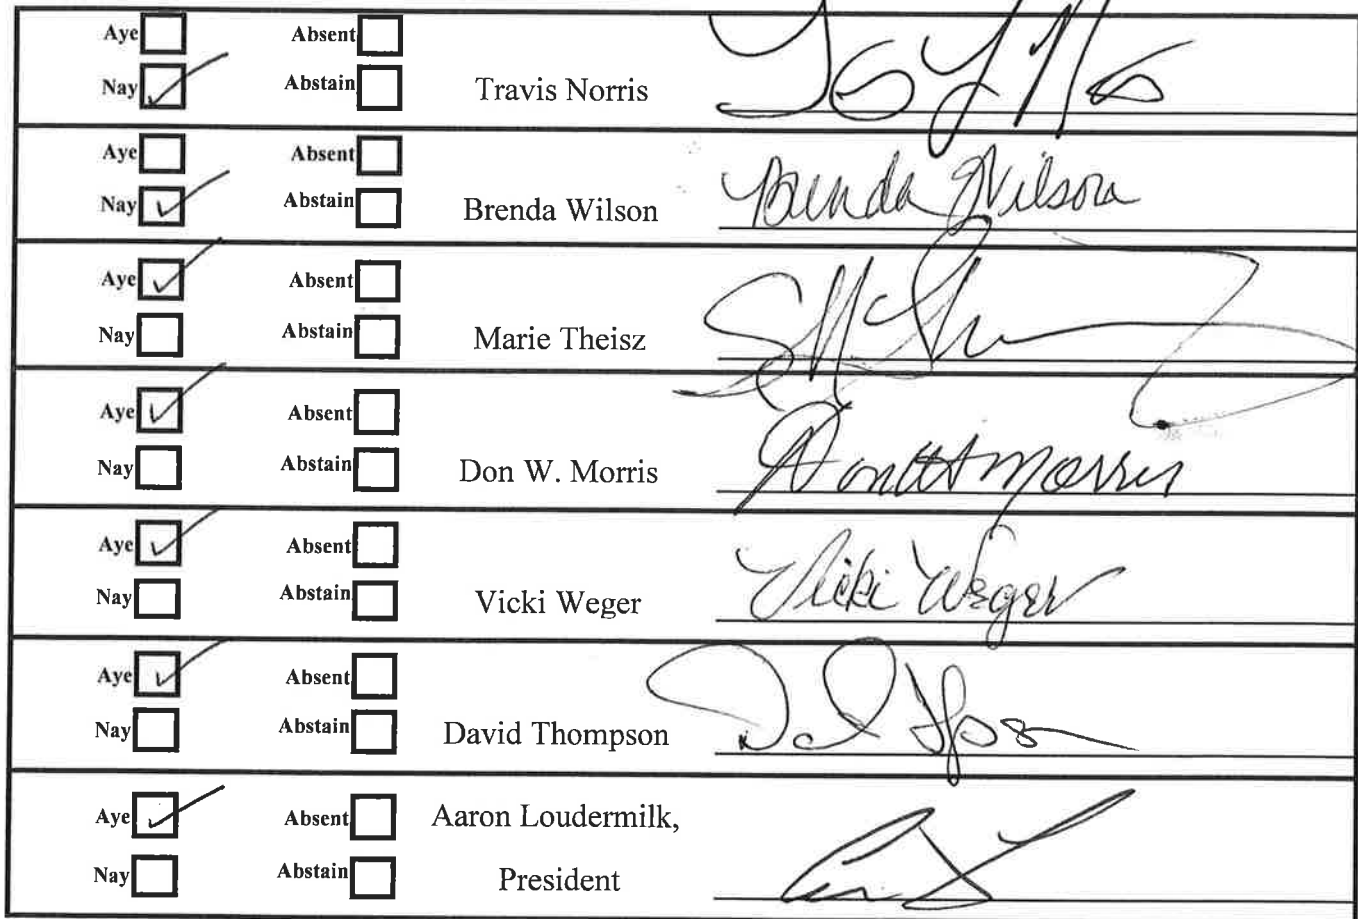 Aye Absent
Nay Abstain Travis Norris
Aye Absent
Nay Abstain Brenda Wilson Brenda Wilson
Aye Absent
Nay Abstain Marie Theisz
Aye Absent
Nay Abstain Don W. Morris Don W Morris
Aye Absent
Nay Abstain Vicki Weger Vicki Weger
Aye Absent
Nay Abstain David Thompson
Aye Absent Aaron Loudermilk,
Nay Abstain President